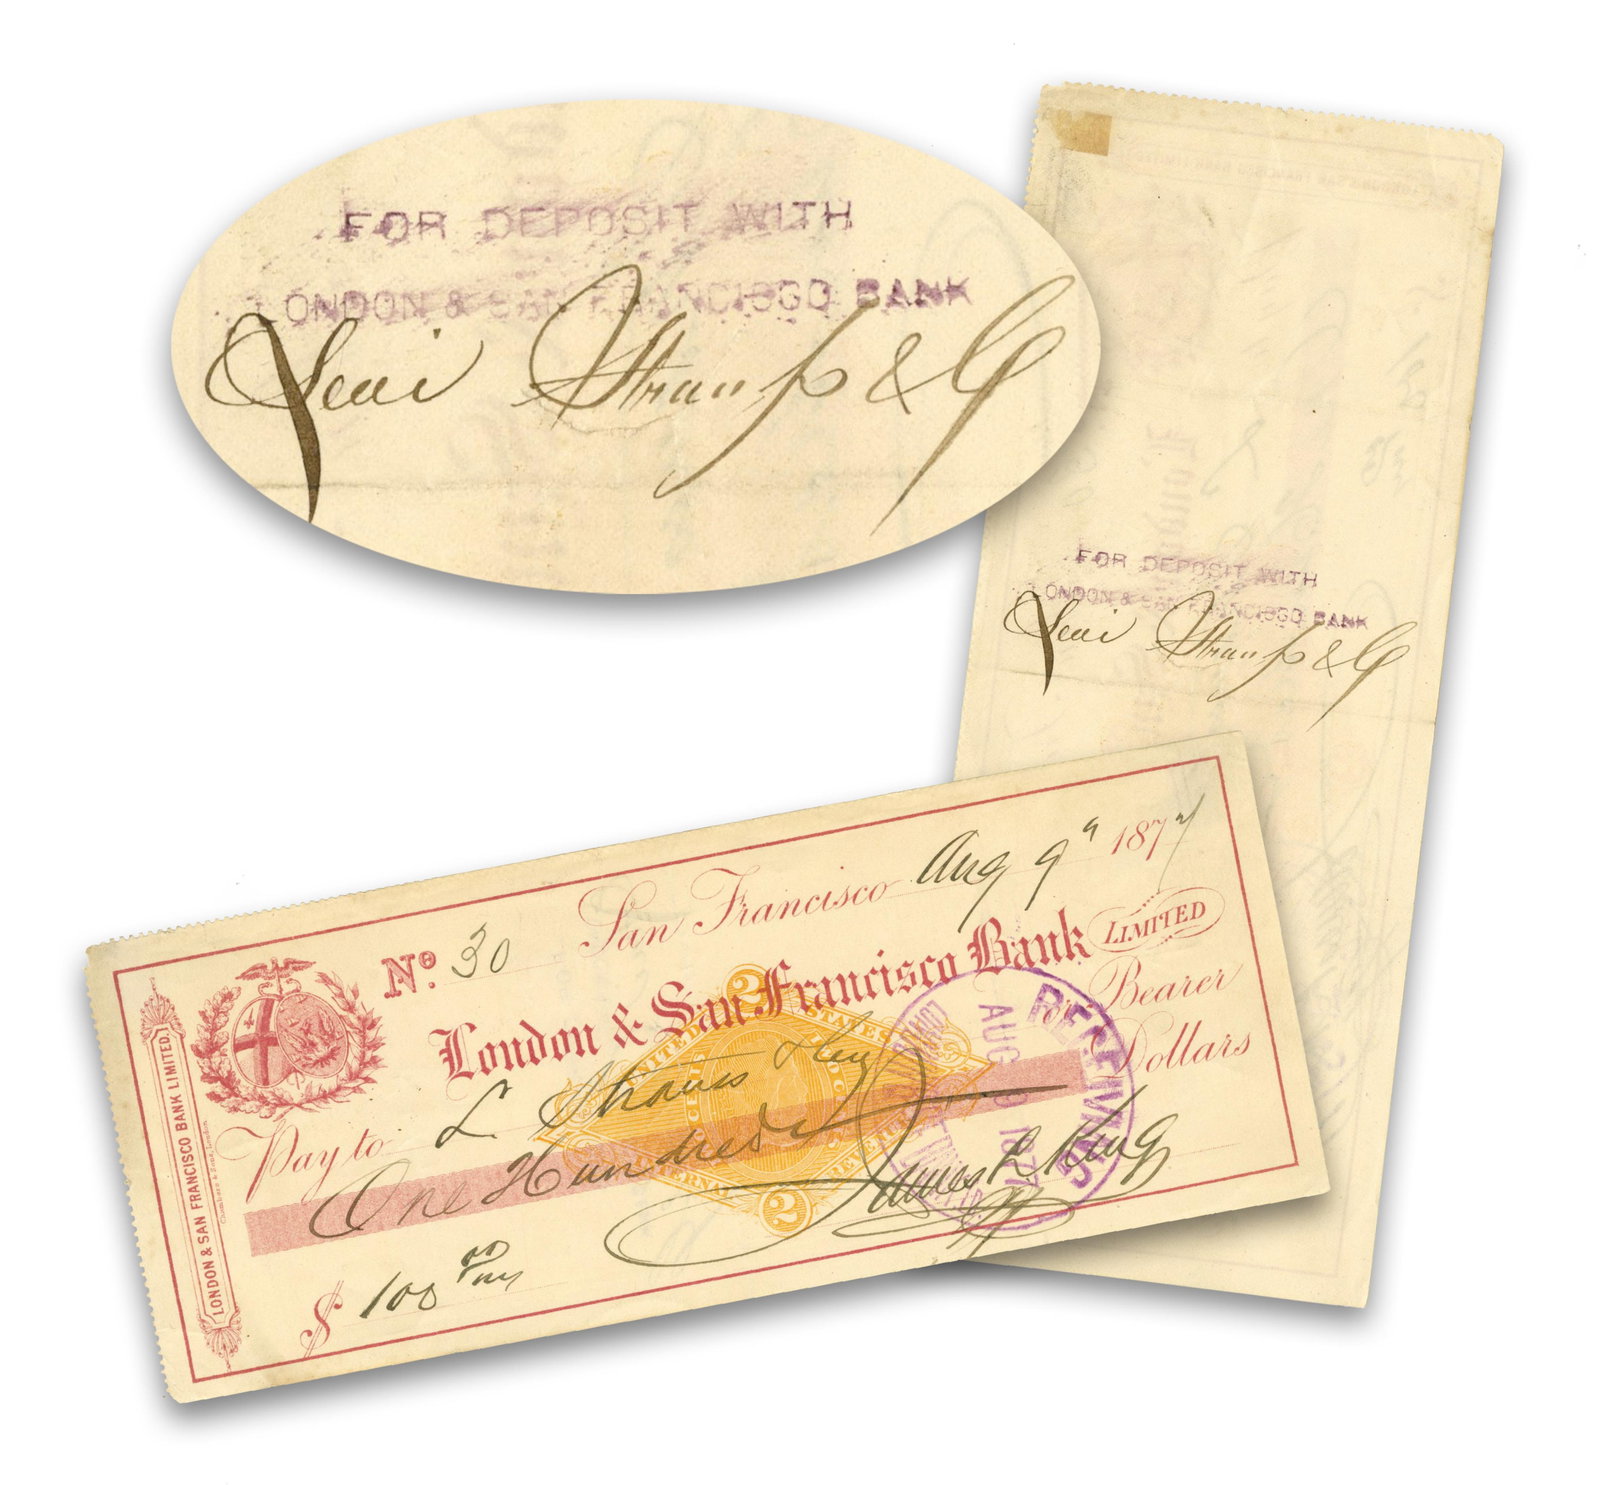 FOR DEPOSIT WITH
LONDON & SAN FRANCISCO BANK
Levi Strauss & Co
FOR DEPOSIT WITH
LONDON & SAN FRANCISCO BANK
Levi Strauss & Co
No. 30 San Francisco Aug 9" 1877
London & San Francisco Bank LIMITED
Pay to L Strauss or Bearer
One Hundred Dollars
$ 100 00
James L King
LONDON & SAN FRANCISCO BANK LIMITED.
UNITED STATES
TWO CENTS
INTERNAL REVENUE
2
2
RECEIVING
AUG 9 1877